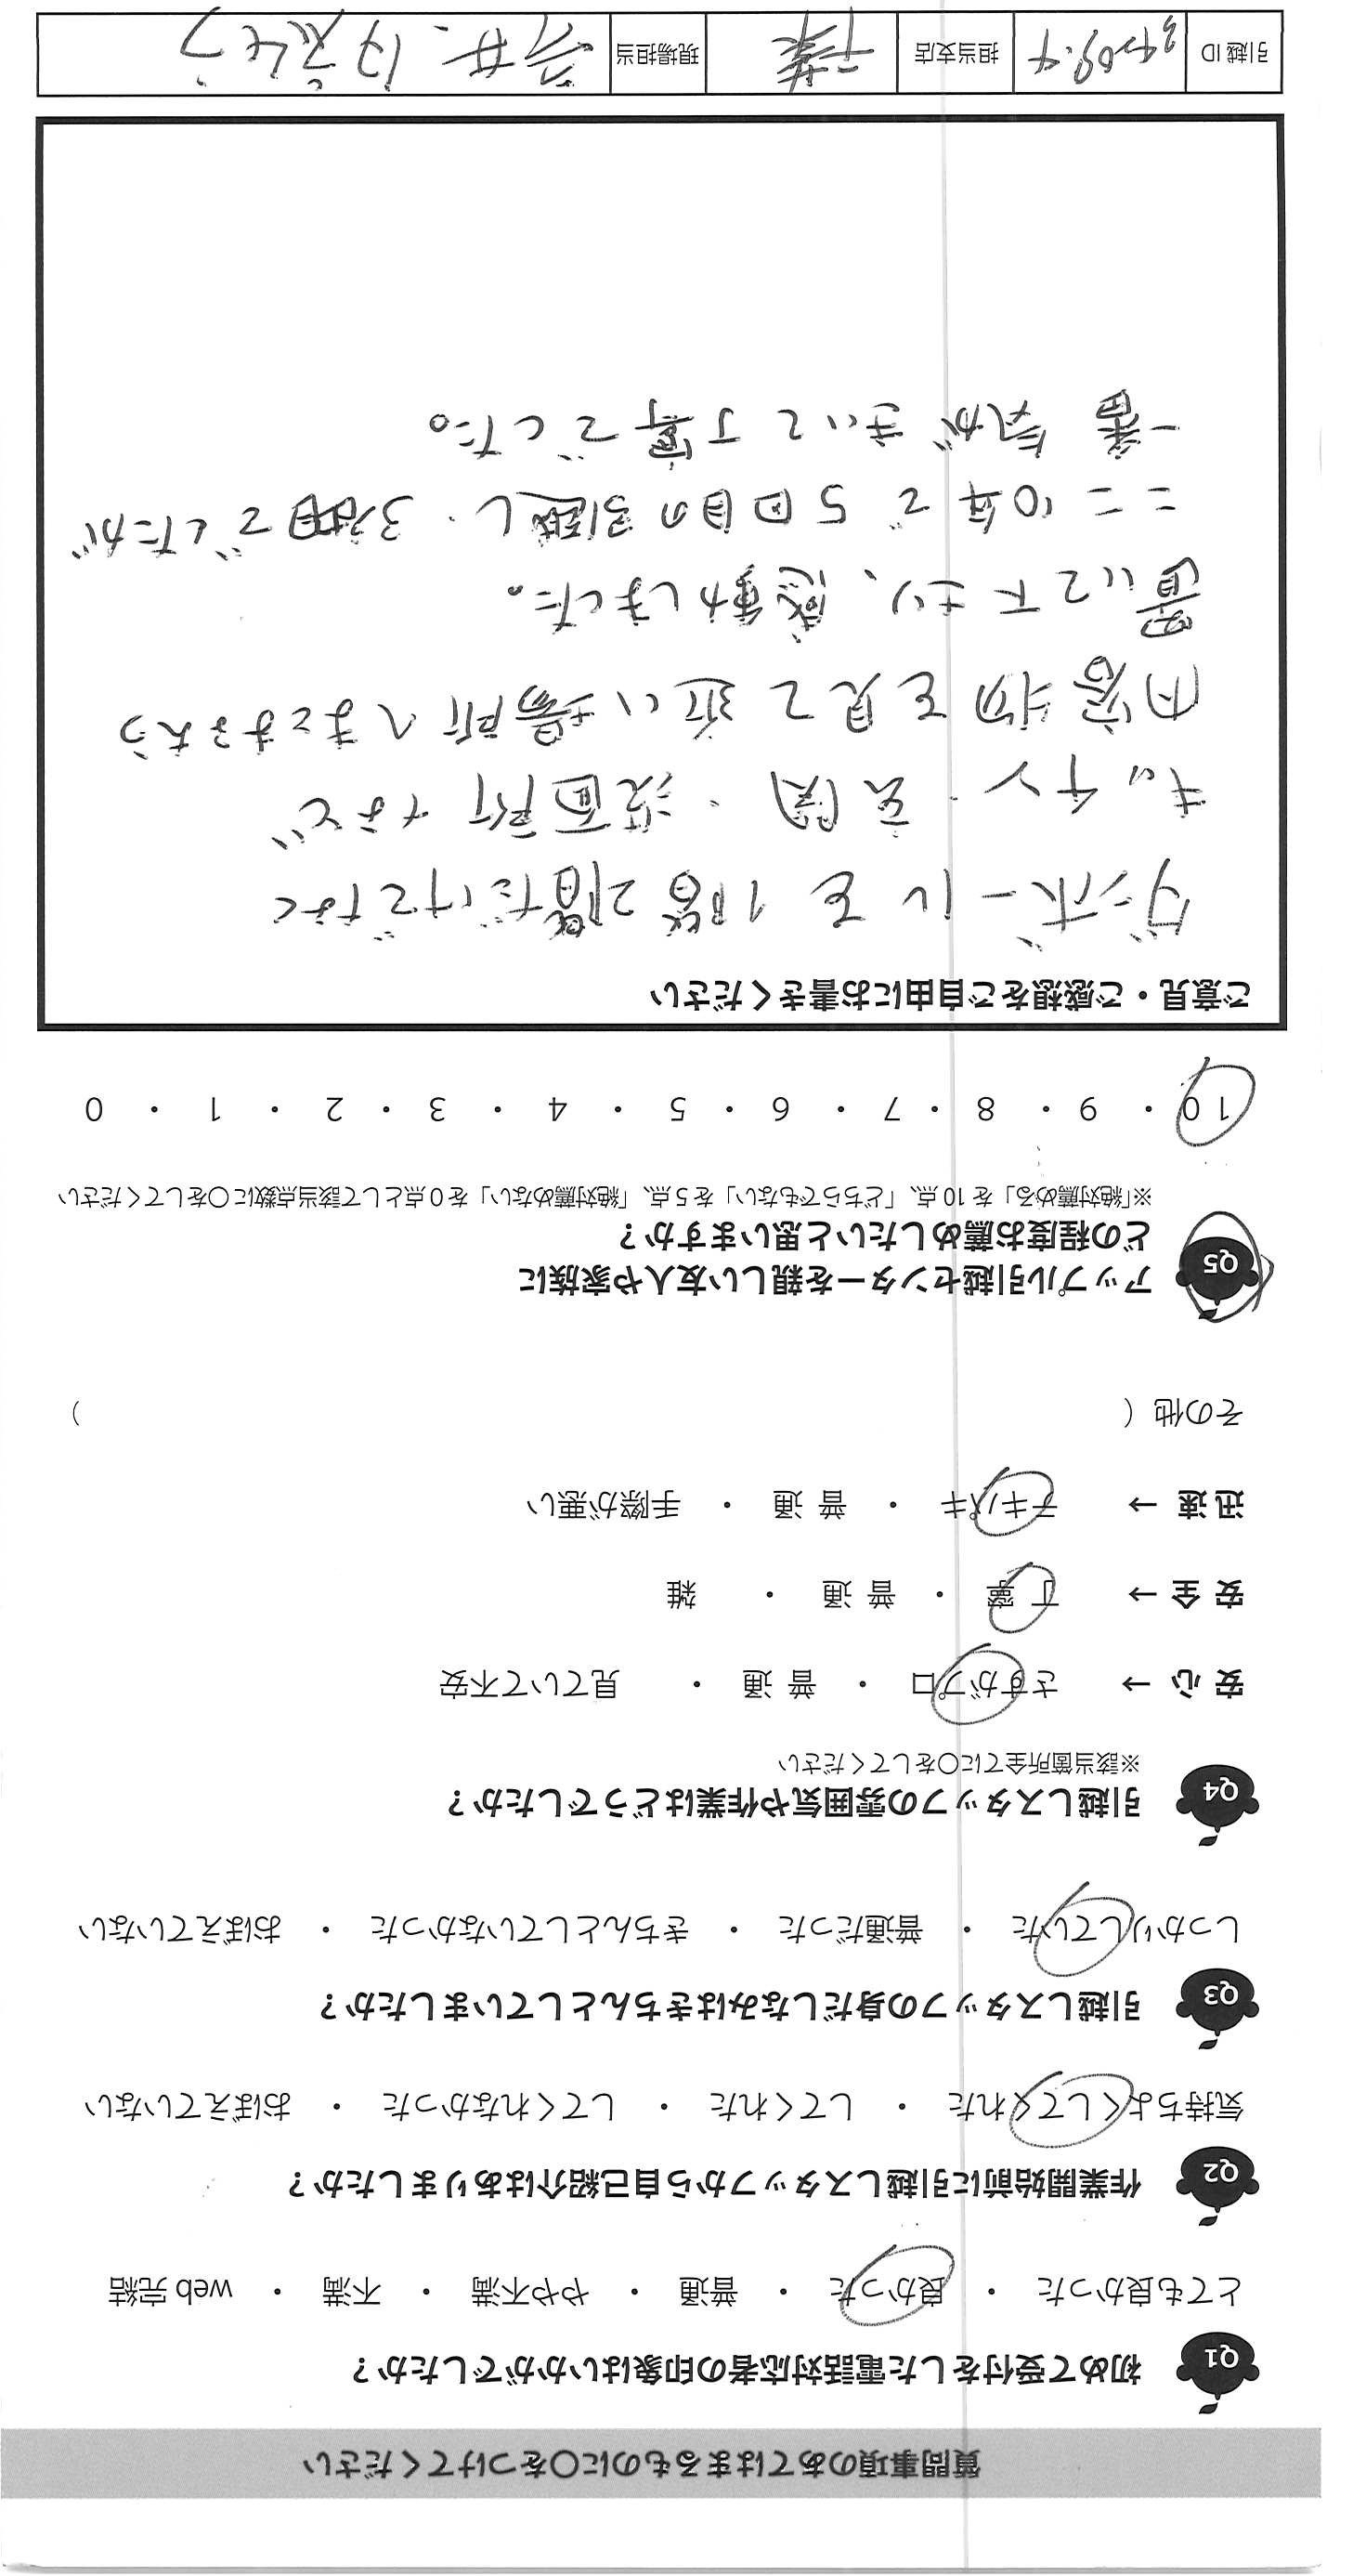 質問事項のあてはまるものに○をつけてください
Q1 初めて受付をした電話対応者の印象はいかがでしたか？
とても良かった ・ 良かった ・ 普通 ・ やや不満 ・ 不満 ・ web 完結
Q2 作業開始前に引越しスタッフから自己紹介はありましたか？
気持ちよくしてくれた ・ してくれた ・ してくれなかった ・ おぼえていない
Q3 引越しスタッフの身だしなみはきちんとしていましたか？
しっかりしていた ・ 普通だった ・ きちんとしていなかった ・ おぼえていない
Q4 引越しスタッフの雰囲気や作業はどうでしたか？
※該当箇所全てに○をしてください
安 心 → さすがプロ ・ 普 通 ・ 見ていて不安
安 全 → 丁 寧 ・ 普 通 ・ 雑
迅 速 → テキパキ ・ 普 通 ・ 手際が悪い
その他（ ）
Q5 アップル引越センターを親しい友人や家族に
どの程度お薦めしたいと思いますか？
※「絶対薦める」を10点、「どちらでもない」を5点、「絶対薦めない」を0点として該当点数に○をしてください
10 ・ 9 ・ 8 ・ 7 ・ 6 ・ 5 ・ 4 ・ 3 ・ 2 ・ 1 ・ 0
ご意見・ご感想をご自由にお書きください
ダンボールを1階2階だけでなく
キッチン・玄関・洗面所 など
内容物を見て近い場所へまとまるよう
置いて下さり、感動しました。
ここ10年で5回目の引越し・3社目でしたが
一番気がきいて丁寧でした。
引越ID 担当支店 千葉 現場担当